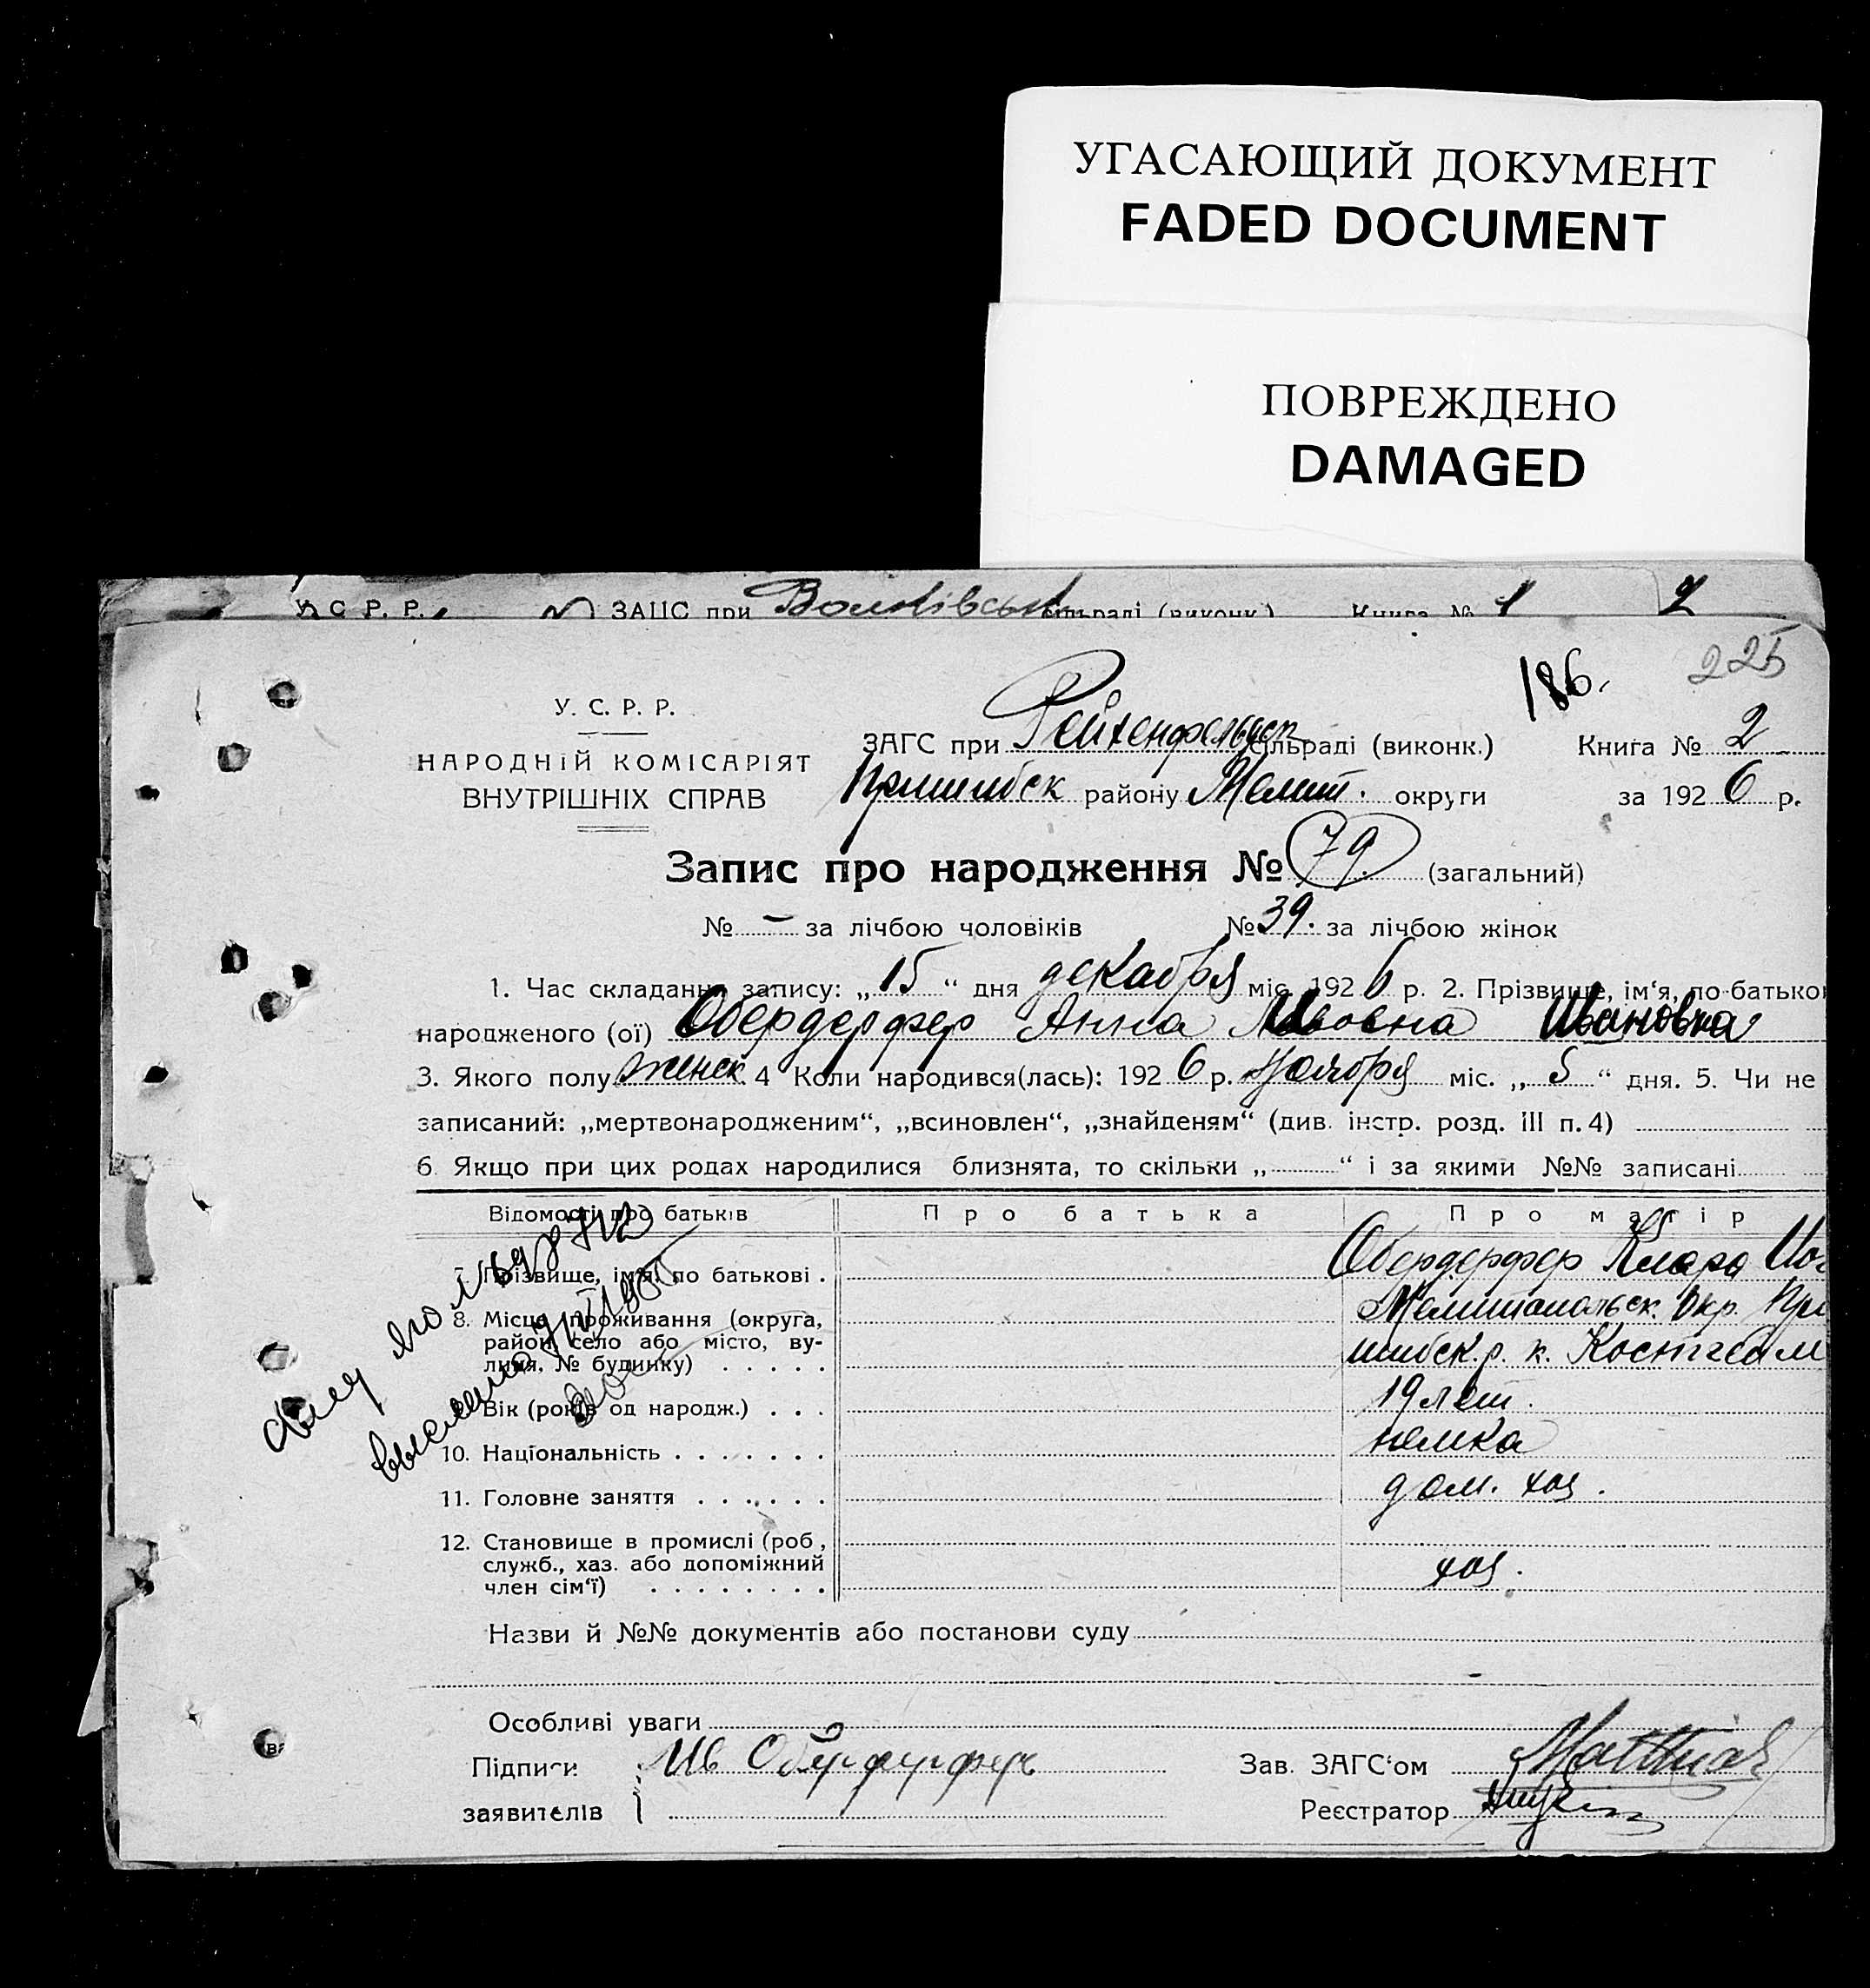 УГАСАЮЩИЙ ДОКУМЕНТ
FADED DOCUMENT
ПОВРЕЖДЕНО
DAMAGED
У С Р. Р. ЗАЦС при сільраді (виконк.) Книга № 1 2
186. 225
У. С. Р. Р.
НАРОДНІЙ КОМІСАРІЯТ
ВНУТРІШНІХ СПРАВ
ЗАГС при Рейхенфельдск сільраді (виконк.) Книга № 2
Пришибск району Мелит. округи за 1926 р.
Запис про народження № 79 (загальний)
№ – за лічбою чоловіків № 39. за лічбою жінок
1. Час складання запису: „15“ дня декабря міс. 1926 р. 2. Прізвище, ім‘я, по-батько
народженого (ої) Обердерфер Анна Ивановна
3. Якого полу женск. 4 Коли народився(лась): 1926 р. Ноября міс. „5“ дня. 5. Чи не
записаний: „мертвонародженим“, „всиновлен“, „знайденям“ (див. інстр. розд. III п. 4)
6. Якщо при цих родах народилися близнята, то скільки „ “ і за якими №№ записані
Відомості про батьків Про батька Про матір
7. Прізвище, ім‘я, по батькові . Обердерфер Клара
8. Місце проживання (округа, район, село або місто, вулиця, № будинку) . . . . . Мелитопольск. Окр. При
шибск. р. к. Костгейм
9. Вік (років од народж.) . . . 19 лет.
10. Національність . . . . . . . немка
11. Головне заняття . . . . . . дом. хоз.
12. Становище в промислі (роб., служб., хаз. або допоміжний член сім‘ї) . . . . . . . . хоз.
Назви й №№ документів або постанови суду
Особливі уваги
Підписи Ив Обердерфер Зав. ЗАГС‘ом Matthias
заявителів Реєстратор